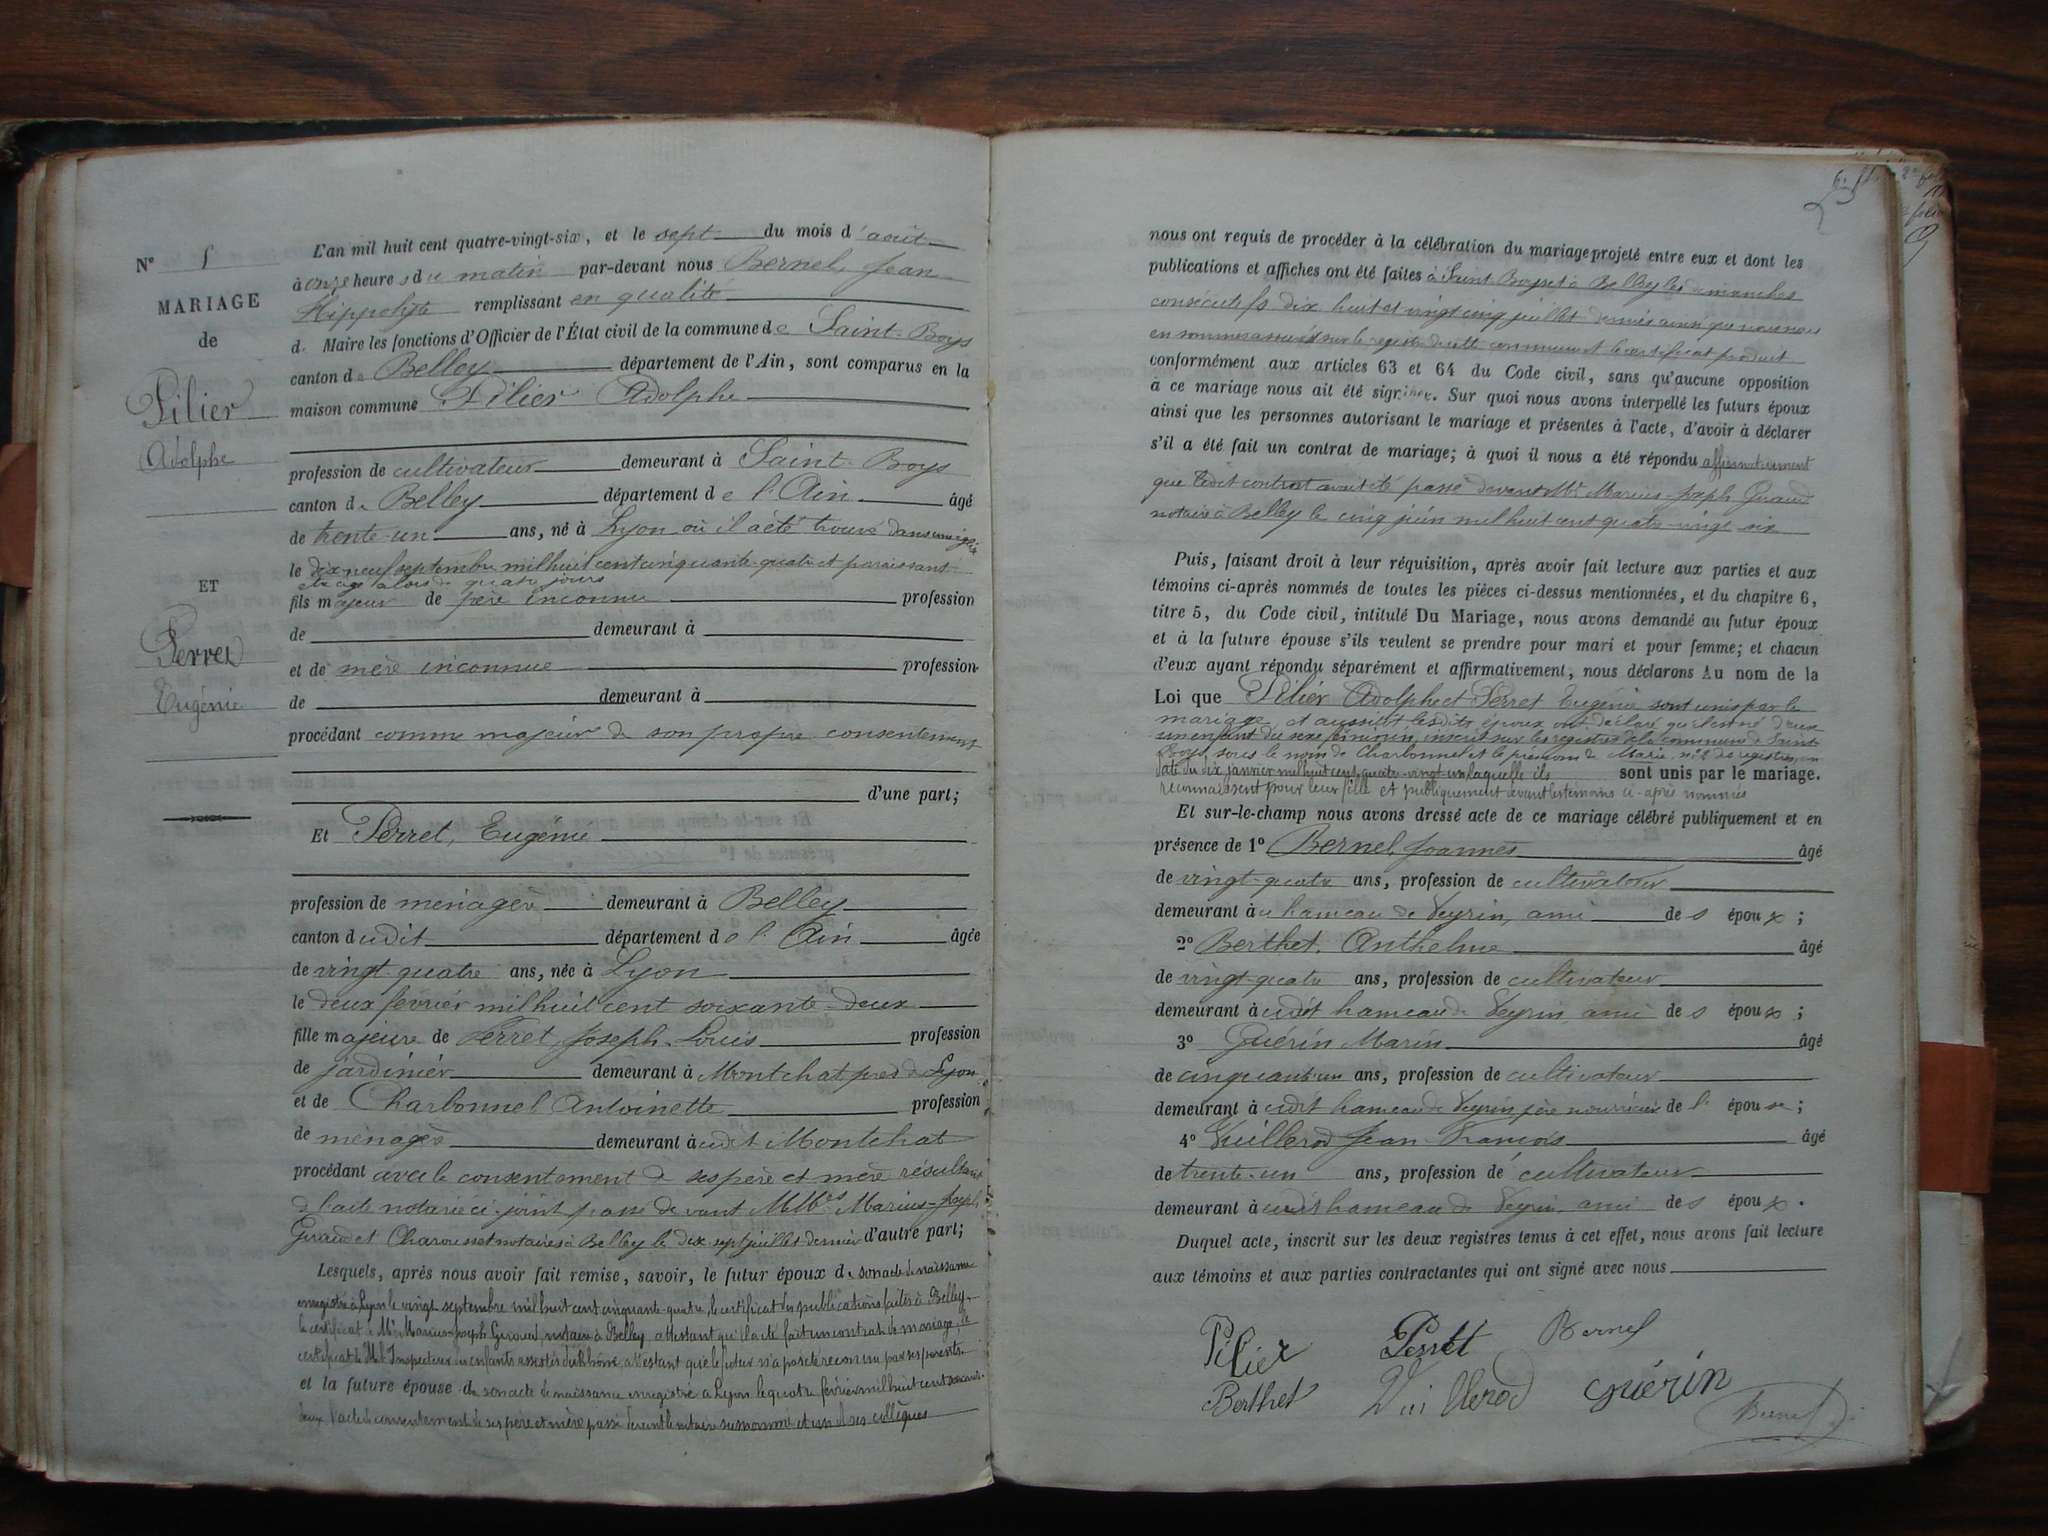 L'an mil huit cent quatre-vingt-six, et le sept du mois d'août
à onze heures du matin par-devant nous Bernel, Jean
Hippolyte remplissant en qualité
de Maire les fonctions d'Officier de l'État civil de la commune de Saint-Boys
canton de Belley département de l'Ain, sont comparus en la
maison commune Pilier Adolphe
profession de cultivateur demeurant à Saint-Boys
canton de Belley département de l'Ain âgé
de trente-un ans, né à Lyon où il a été trouvé dans une église
le dix neuf septembre mil huit cent cinquante-quatre et paraissant
être âgé alors de quatre jours
fils majeur de père inconnu profession
de demeurant à
et de mère inconnue profession
de demeurant à
procédant comme majeur de son propre consentement
d'une part;
Et Perret, Eugénie
profession de ménagère demeurant à Belley
canton dudit département de l'Ain âgée
de vingt-quatre ans, née à Lyon
le deux février mil huit cent soixante-deux
fille majeure de Perret, Joseph-Louis profession
de jardinier demeurant à Montchat près de Lyon
et de Charbonnel Antoinette profession
de ménagère demeurant à udit Montchat
procédant avec le consentement de ses père et mère résultant
de l'acte notarié ci-joint passé devant MMes Marius-Joseph
Giraud et Charousset notaires à Belley le dix sept juillet dernier d'autre part;
Lesquels, après nous avoir fait remise, savoir, le futur époux de son acte de naissance
enregistré à Lyon le vingt septembre mil huit cent cinquante-quatre, le certificat des publications faites à Belley,
le certificat de Me Marius-Joseph Giraud, notaire à Belley, attestant qu'il a été fait un contrat de mariage, le
certificat de Mr l'Inspecteur des enfants assistés du Rhône, attestant que le futur n'a pas été reconnu par ses parents.
et la future épouse de son acte de naissance enregistré à Lyon le quatre février mil huit cent soixante-
deux, l'acte de consentement de ses père et mère passé devant le notaire susnommé et un de ses collègues
N° 5
MARIAGE
de
Pilier
Adolphe
ET
Perret
Eugénie
nous ont requis de procéder à la célébration du mariage projeté entre eux et dont les
publications et affiches ont été faites à Saint-Boys et à Belley les dimanches
consécutifs dix huit et vingt cinq juillet dernier ainsi que nous nous
en sommes assurés sur le registre de cette commune et le certificat produit
conformément aux articles 63 et 64 du Code civil, sans qu'aucune opposition
à ce mariage nous ait été signifiée. Sur quoi nous avons interpellé les futurs époux
ainsi que les personnes autorisant le mariage et présentes à l'acte, d'avoir à déclarer
s'il a été fait un contrat de mariage; à quoi il nous a été répondu affirmativement
que ledit contrat avait été passé devant Me Marius-Joseph Giraud
notaire à Belley le cinq juin mil huit cent quatre-vingt-six
Puis, faisant droit à leur réquisition, après avoir fait lecture aux parties et aux
témoins ci-après nommés de toutes les pièces ci-dessus mentionnées, et du chapitre 6,
titre 5, du Code civil, intitulé Du Mariage, nous avons demandé au futur époux
et à la future épouse s'ils veulent se prendre pour mari et pour femme; et chacun
d'eux ayant répondu séparément et affirmativement, nous déclarons Au nom de la
Loi que Pilier Adolphe et Perret Eugénie sont unis par le
mariage, et aussitôt lesdits époux ont déclaré qu'il est né d'eux
un enfant du sexe féminin, inscrit sur les registres de la commune de Saint-
Boys, sous le nom de Charbonnel et le prénom de Marie, n° 2 de registre, en
date du dix janvier mil huit cent quatre-vingt-un laquelle ils sont unis par le mariage.
reconnaissent pour leur fille et publiquement devant les témoins ci-après nommés
Et sur-le-champ nous avons dressé acte de ce mariage célébré publiquement et en
présence de 1° Bernel, Joannès âgé
de vingt-quatre ans, profession de cultivateur
demeurant à u hameau de Veyrin, ami des époux;
2° Berthet, Anthelme âgé
de vingt-quatre ans, profession de cultivateur
demeurant à udit hameau de Veyrin, ami des époux;
3° Guérin Marin âgé
de cinquante-un ans, profession de cultivateur
demeurant à udit hameau de Veyrin, père nourricier de l'épouse;
4° Vuillerod Jean-François âgé
de trente-un ans, profession de cultivateur
demeurant à udit hameau de Veyrin, ami des époux.
Duquel acte, inscrit sur les deux registres tenus à cet effet, nous avons fait lecture
aux témoins et aux parties contractantes qui ont signé avec nous
Pilier Perret Bernel
Berthet Vuillerod Guérin
Bernel